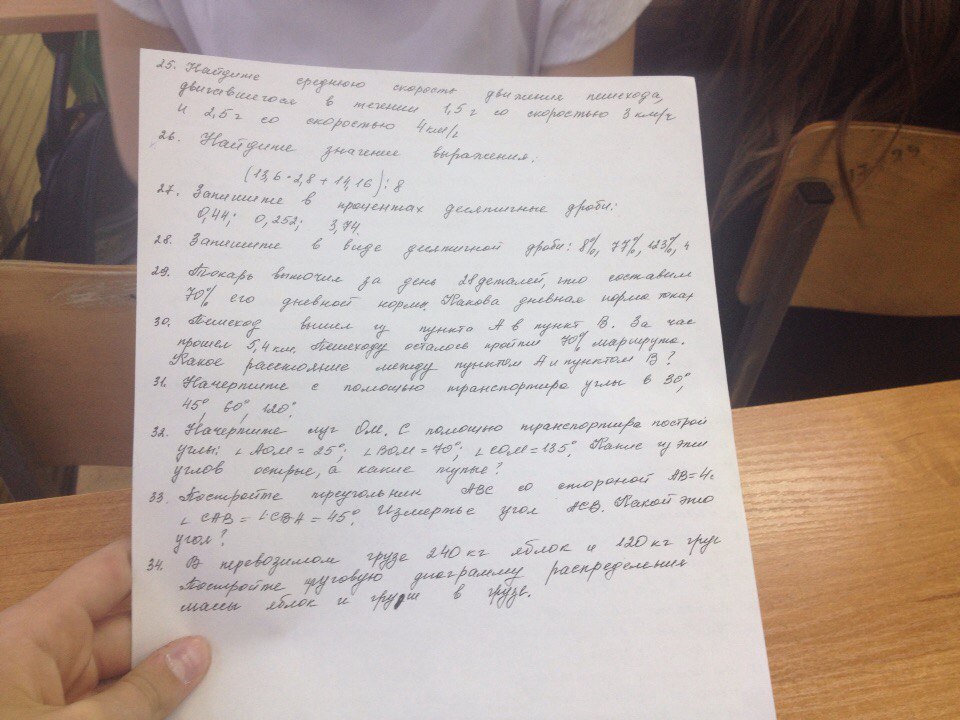 25. Найдите среднюю скорость движение пешехода,
двигавшегося в течении 1,5 г со скоростью 3 км/ч
и 2,5 г со скоростью 4 км/г
26. Найдите значение выражения.
(13,6 · 2,8 + 14,16) : 8
27. Запишите в процентах десятичные дроби:
0,44; 0,252; 3,74.
28. Запишите в виде десятичной дроби: 8%, 77%, 123%, 4
29. Токарь выточил за день 28 деталей, это составим
70% его дневной нормы. Какова дневная норма тока
30. Пешеход вышел из пункта А в пункт В. За час
прошел 5,4 км. Пешеходу осталось пройти 70% маршрута.
Какое расстояние между пунктом А и пунктом В?
31. Начертите с помощью транспортира углы в 30°,
45°, 60°, 120°.
32. Начертите луг ОМ. С помощью транспортира построй
углы: ∠AOM = 25°; ∠BOM = 70°; ∠COM = 135°. Какие из эти
углов острые, а какие тупые?
33. Постройте треугольник АВС со стороной АВ=4
∠CAB = ∠CBA = 45°. Измерьте угол АСВ. Какой это
угол?
34. В перевозимом грузе 240 кг яблок и 120 кг груш
Постройте круговую диаграмму распределения
массы яблок и груш в грузе.